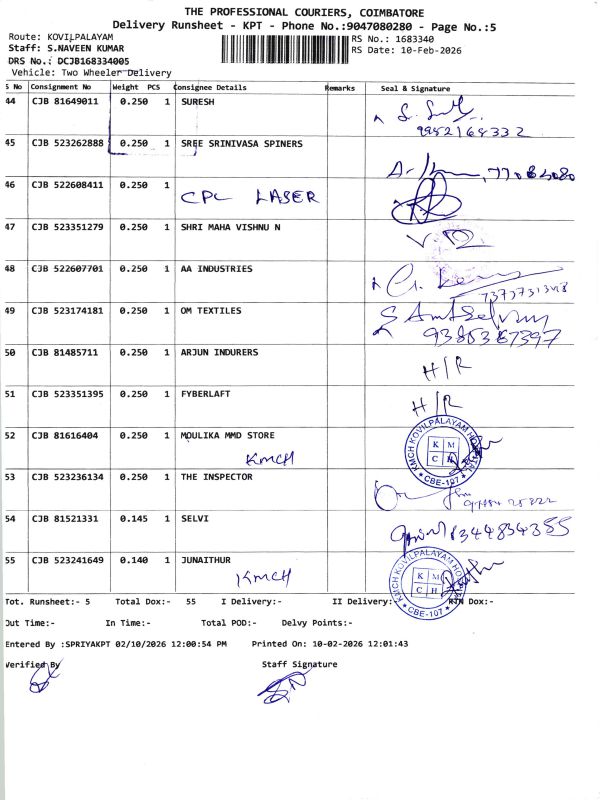 THE PROFESSIONAL COURIERS, COIMBATORE
Delivery Runsheet - KPT - Phone No.:9047080280 - Page No.:5
Route: KOVILPALAYAM
Staff: S.NAVEEN KUMAR
DRS No.: DCJB168334005
Vehicle: Two Wheeler Delivery
RS No.: 1683340
RS Date: 10-Feb-2026
S No Consignment No Weight PCS Consignee Details Remarks Seal & Signature
44 CJB 81649011 0.250 1 SURESH
9952168332
45 CJB 523262888 0.250 1 SREE SRINIVASA SPINERS
46 CJB 522608411 0.250 1
CPC LASER
47 CJB 523351279 0.250 1 SHRI MAHA VISHNU N
48 CJB 522607701 0.250 1 AA INDUSTRIES
49 CJB 523174181 0.250 1 OM TEXTILES
9385367397
50 CJB 81485711 0.250 1 ARJUN INDURERS H/R
51 CJB 523351395 0.250 1 FYBERLAFT H/R
52 CJB 81616404 0.250 1 MOULIKA MMD STORE
KMCH
KMCH KOVILPALAYAM HOSPITAL
K M
C H
CBE-107
53 CJB 523236134 0.250 1 THE INSPECTOR
54 CJB 81521331 0.145 1 SELVI
8344834355
55 CJB 523241649 0.140 1 JUNAITHUR
KMCH
KMCH KOVILPALAYAM
K M
C H
CBE-107
Tot. Runsheet:- 5 Total Dox:- 55 I Delivery:- II Delivery:- RTN Dox:-
Out Time:- In Time:- Total POD:- Delvy Points:-
Entered By :SPRIYAKPT 02/10/2026 12:00:54 PM Printed On: 10-02-2026 12:01:43
Verified By Staff Signature